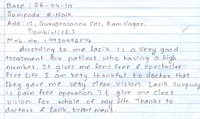 Date : 26-04-10
Sampada R. Naik
Add : 15, Guruprasanna CHS, Ram nagar,
Dombivli (E)
Mob. No. : 9930496914
According to me lasik is a very good
treatment for patients who having a high
number. It gives me lens free & spectacles
free life. I am very thankful to doctor that
they gave me very clear vision. Lasik surgery
is pain free operation. It give me clear
vision for whole of my life. Thanks to
doctors & lasik treatment.